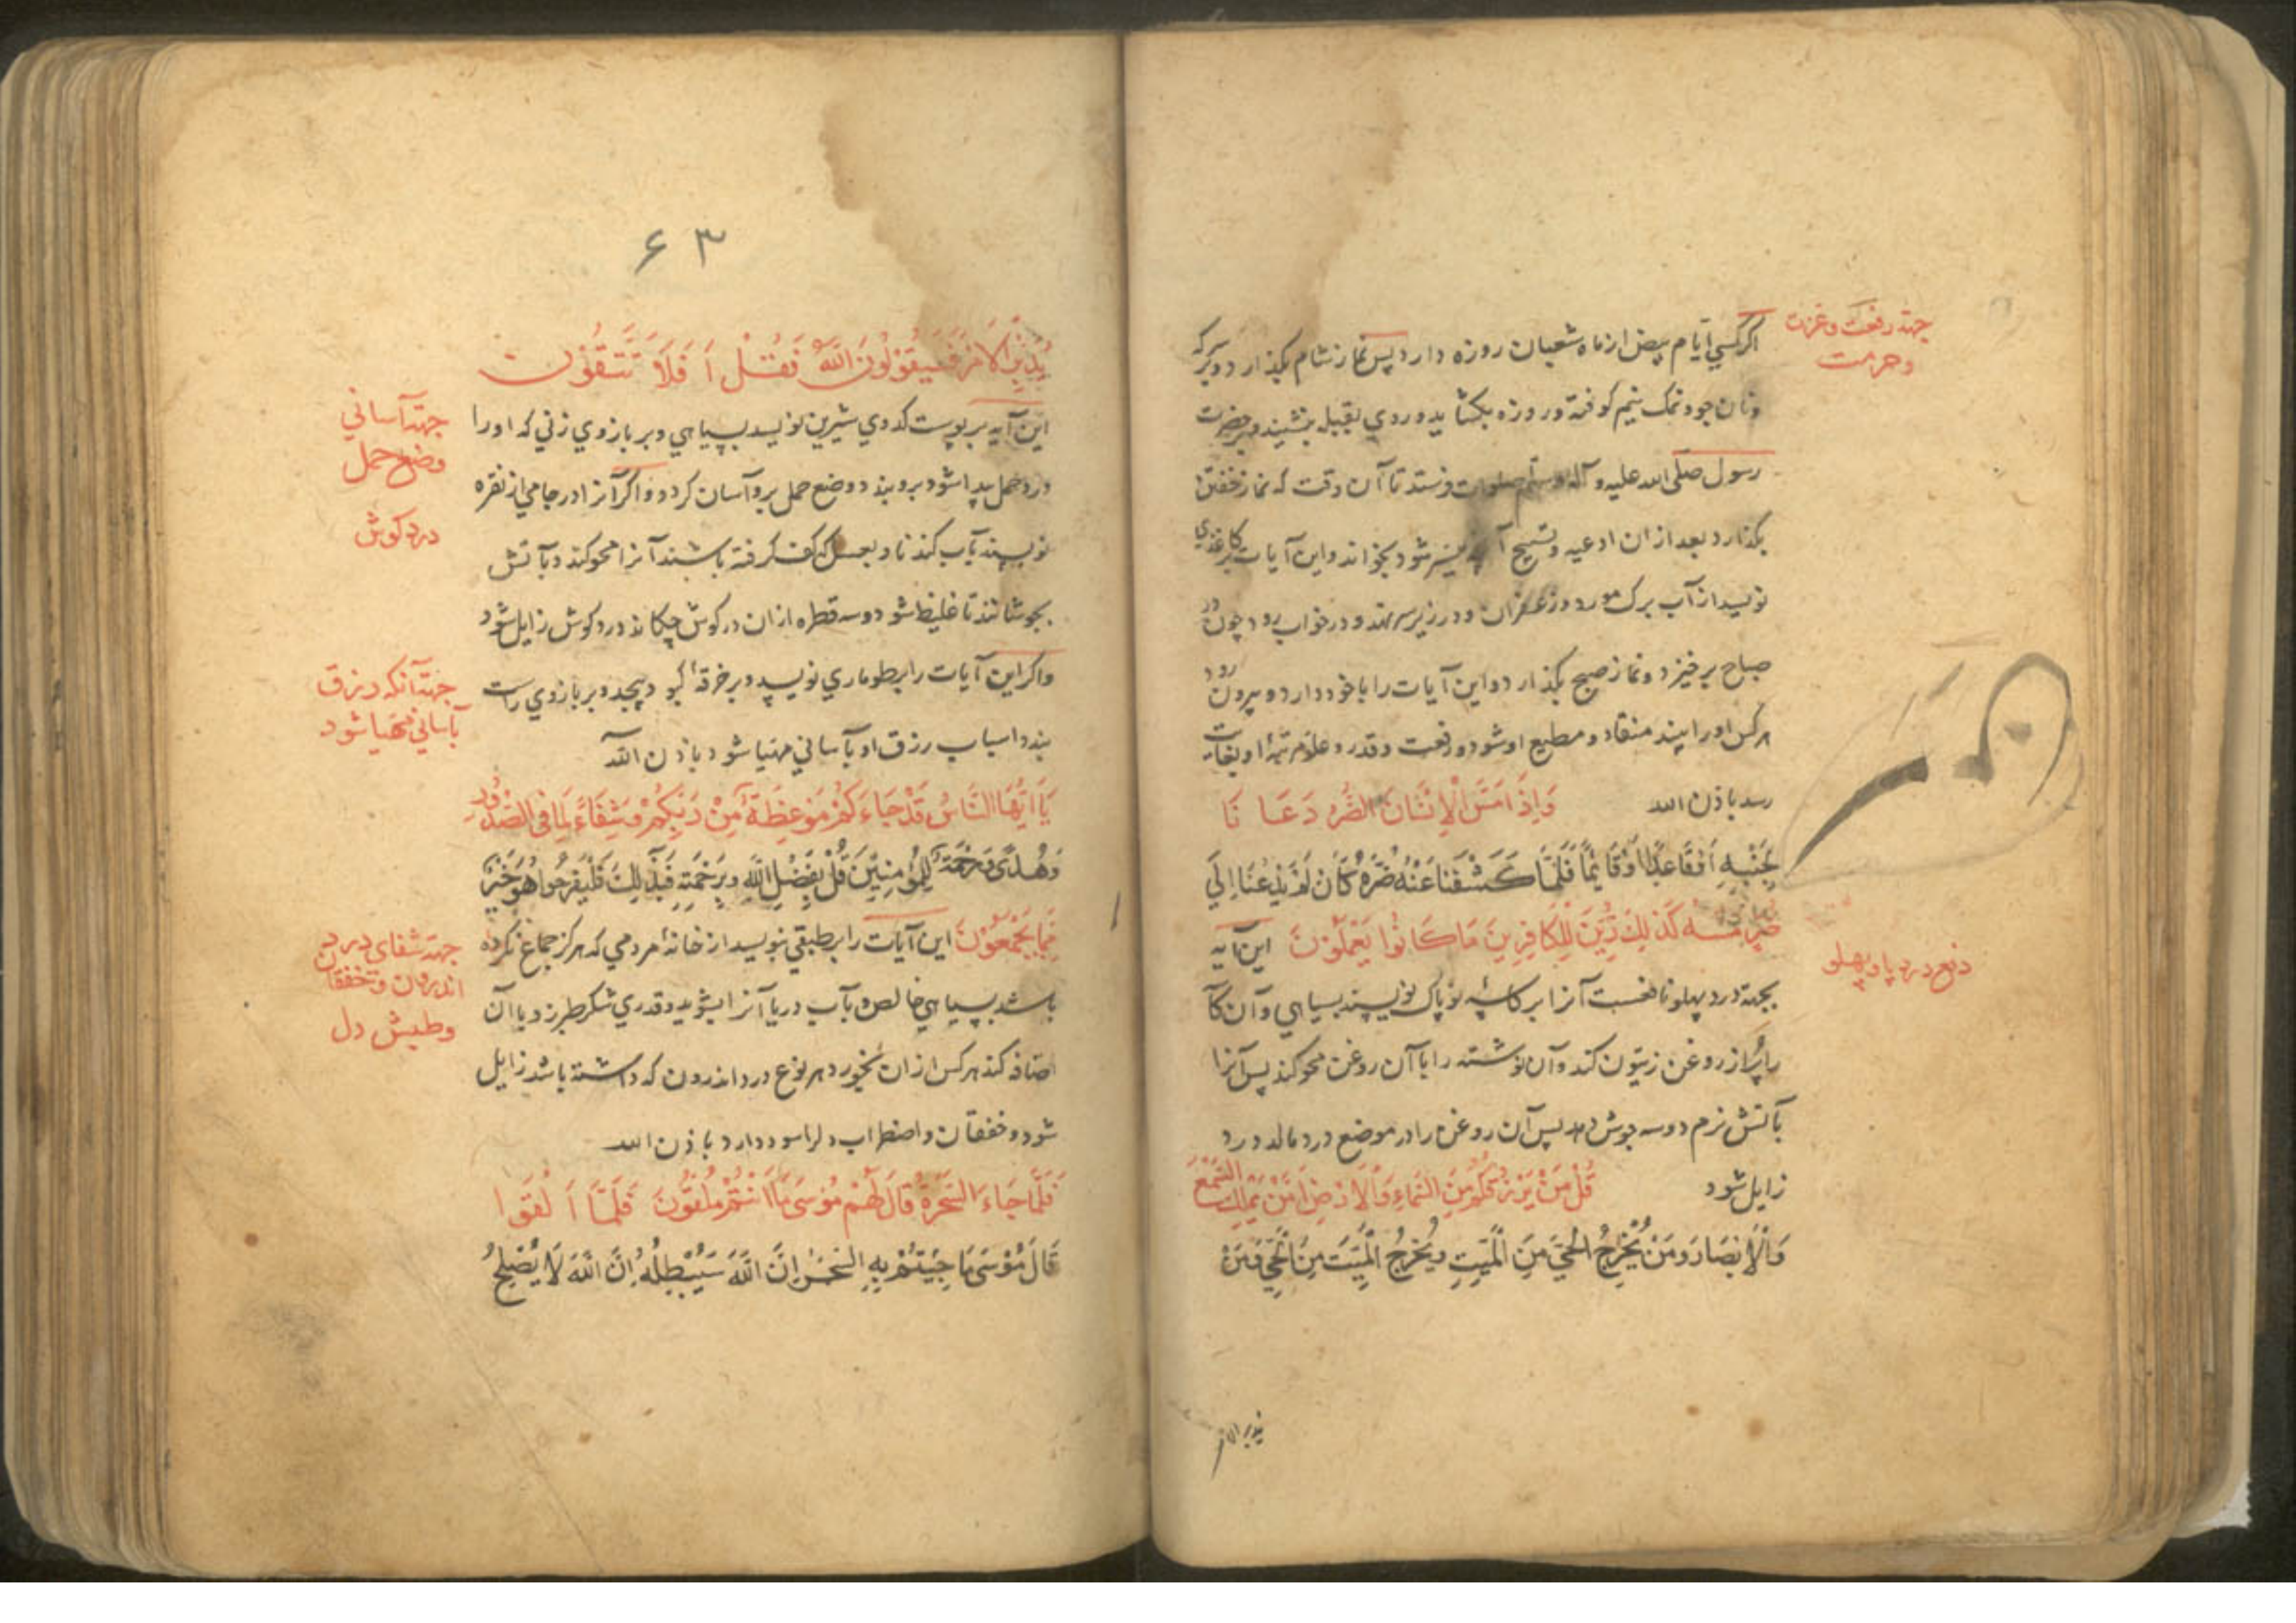 جهة رفعت و عزت
و حرمت
اگر کسی ایام بیض از ماه شعبان روزه دارد پس نماز شام بگذارد و بسرکه
و نان جو و نمک نیم کوفته روزه بکشاید و روی بقبله بنشیند و بر حضرت
رسول صلی الله علیه و آله و سلم صلوات فرستد تا آن وقت که نماز خفتن
بگذارد بعد از ان ادعیه و تسبیح آنچه میسر شود بخواند و این آیات بر کاغذی
نویسد از آب برک مورد و زعفران و در زیر سر نهد و در خواب رود چون در
صباح برخیزد و نماز صبح بگذارد و این آیات را با خود دارد و بیرون رود
هر کس او را بیند منقاد و مطیع او شود و رفعت و قدر و علو مرتبهٔ او بغایت
رسد باذن الله وَاِذَا مَسَّ الْاِنْسَانَ الضُّرُّ دَعَا نَا
لِجَنْبِهِ اَوْ قَاعِدًا اَوْ قَائِمًا فَلَمَّا كَشَفْنَا عَنْهُ ضُرَّهُ كَاَنْ لَمْ يَدْعُنَا اِلَى
ضُرٍّ مَسَّهُ كَذٰلِكَ زُيِّنَ لِلْكَافِرِينَ مَا كَانُوا يَعْمَلُونَ این آیه
دفع درد پا و پهلو
بجهة درد پهلو نافعست آنرا بر کاسهٔ نو پاک نویسند بسیاهی و آن کا
را پر از روغن زیتون کند و آن نوشته را با آن روغن محو کند پس آنرا
بآتش نرم دو سه جوش دهد پس آن روغن را در موضع درد مالد درد
زایل شود قُلْ مَنْ يَرْزُقُكُمْ مِنَ السَّمَاءِ وَالْاَرْضِ اَمَّنْ يَمْلِكُ السَّمْعَ
وَالْاَبْصَارَ وَمَنْ يُخْرِجُ الْحَيَّ مِنَ الْمَيِّتِ وَيُخْرِجُ الْمَيِّتَ مِنَ الْحَيِّ وَمَنْ
یدبر الامر
۶۳
يُدَبِّرُ الْاَمْرَ فَسَيَقُولُونَ اللّٰهُ فَقُلْ اَفَلَا تَتَّقُونَ
جهة آسانی
وضع حمل
این آیه بر پوست کدوی شیرین نویسد بسیاهی و بر بازوی زنی که او را
درد حمل پیدا شود بروبندد وضع حمل برو آسان کردد و اکر آنرا در جامی از نقره
درد کوش
نویسند بآب کندنا و بعسل که کف کرفته باشند آنرا محو کند و بآتش
بجوشانند تا غلیظ شود دو سه قطره از ان در کوش چکاند درد کوش زایل شود
جهة آنکه رزق
بآسانی مهیا شود
و اکر این آیات را بر طوماری نویسد و بر خرقهٔ کبود پیچد و بر بازوی راست
بندد اسباب رزق او بآسانی مهیا شود باذن الله
يَا اَيُّهَا النَّاسُ قَدْ جَاءَتْكُمْ مَوْعِظَةٌ مِنْ رَبِّكُمْ وَشِفَاءٌ لِمَا فِي الصُّدُورِ
وَهُدًى وَرَحْمَةٌ لِلْمُؤْمِنِينَ قُلْ بِفَضْلِ اللّٰهِ وَبِرَحْمَتِهِ فَبِذٰلِكَ فَلْيَفْرَحُوا هُوَ خَيْرٌ
جهة شفای درد
اندرون و خفقان
و طپش دل
مِمَّا يَجْمَعُونَ این آیات را بر طبقی نویسد از خانهٔ مردمی که هرکز جماع نکرده
باشد بسیاهی خالص و بآب دریا آنرا بشوید و قدری شکر طبرزد با آن
اضافه کند هر کس از ان بخورد هر نوع درد اندرون که داشته باشد زایل
شود و خفقان و اضطراب دل را سود دارد باذن الله
فَلَمَّا جَاءَ السَّحَرَةُ قَالَ لَهُمْ مُوسَى اَلْقُوا مَا اَنْتُمْ مُلْقُونَ فَلَمَّا اَلْقَوْا
قَالَ مُوسَى مَا جِئْتُمْ بِهِ السِّحْرُ اِنَّ اللّٰهَ سَيُبْطِلُهُ اِنَّ اللّٰهَ لَا يُصْلِحُ